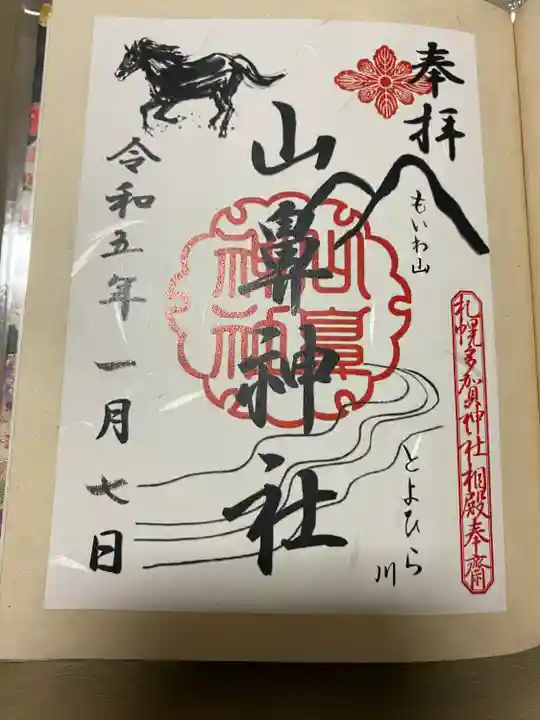 奉拝
もいわ山
札幌多賀神社相殿奉齋
とよひら川
山鼻神社
山鼻神社
令和五年一月七日